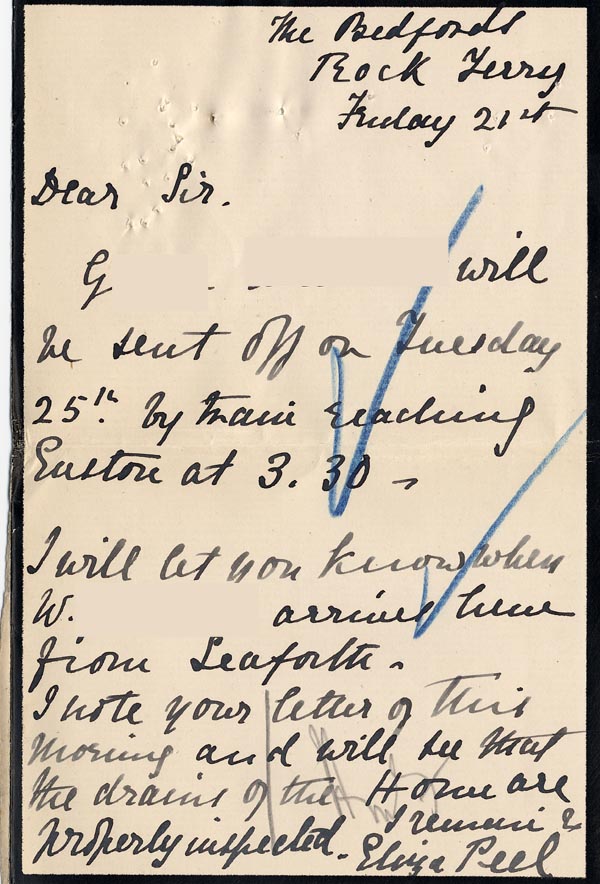 The Bedfords
Rock Ferry
Friday 21st
Dear Sir.
G will
be sent off on Tuesday
25th. by train reaching
Euston at 3.30 -
I will let you know when
W. arrives here
from Seaforth.
I note your letter of this
morning and will see that
the drains of the Home are
properly inspected. I remain &
Eliza Peel